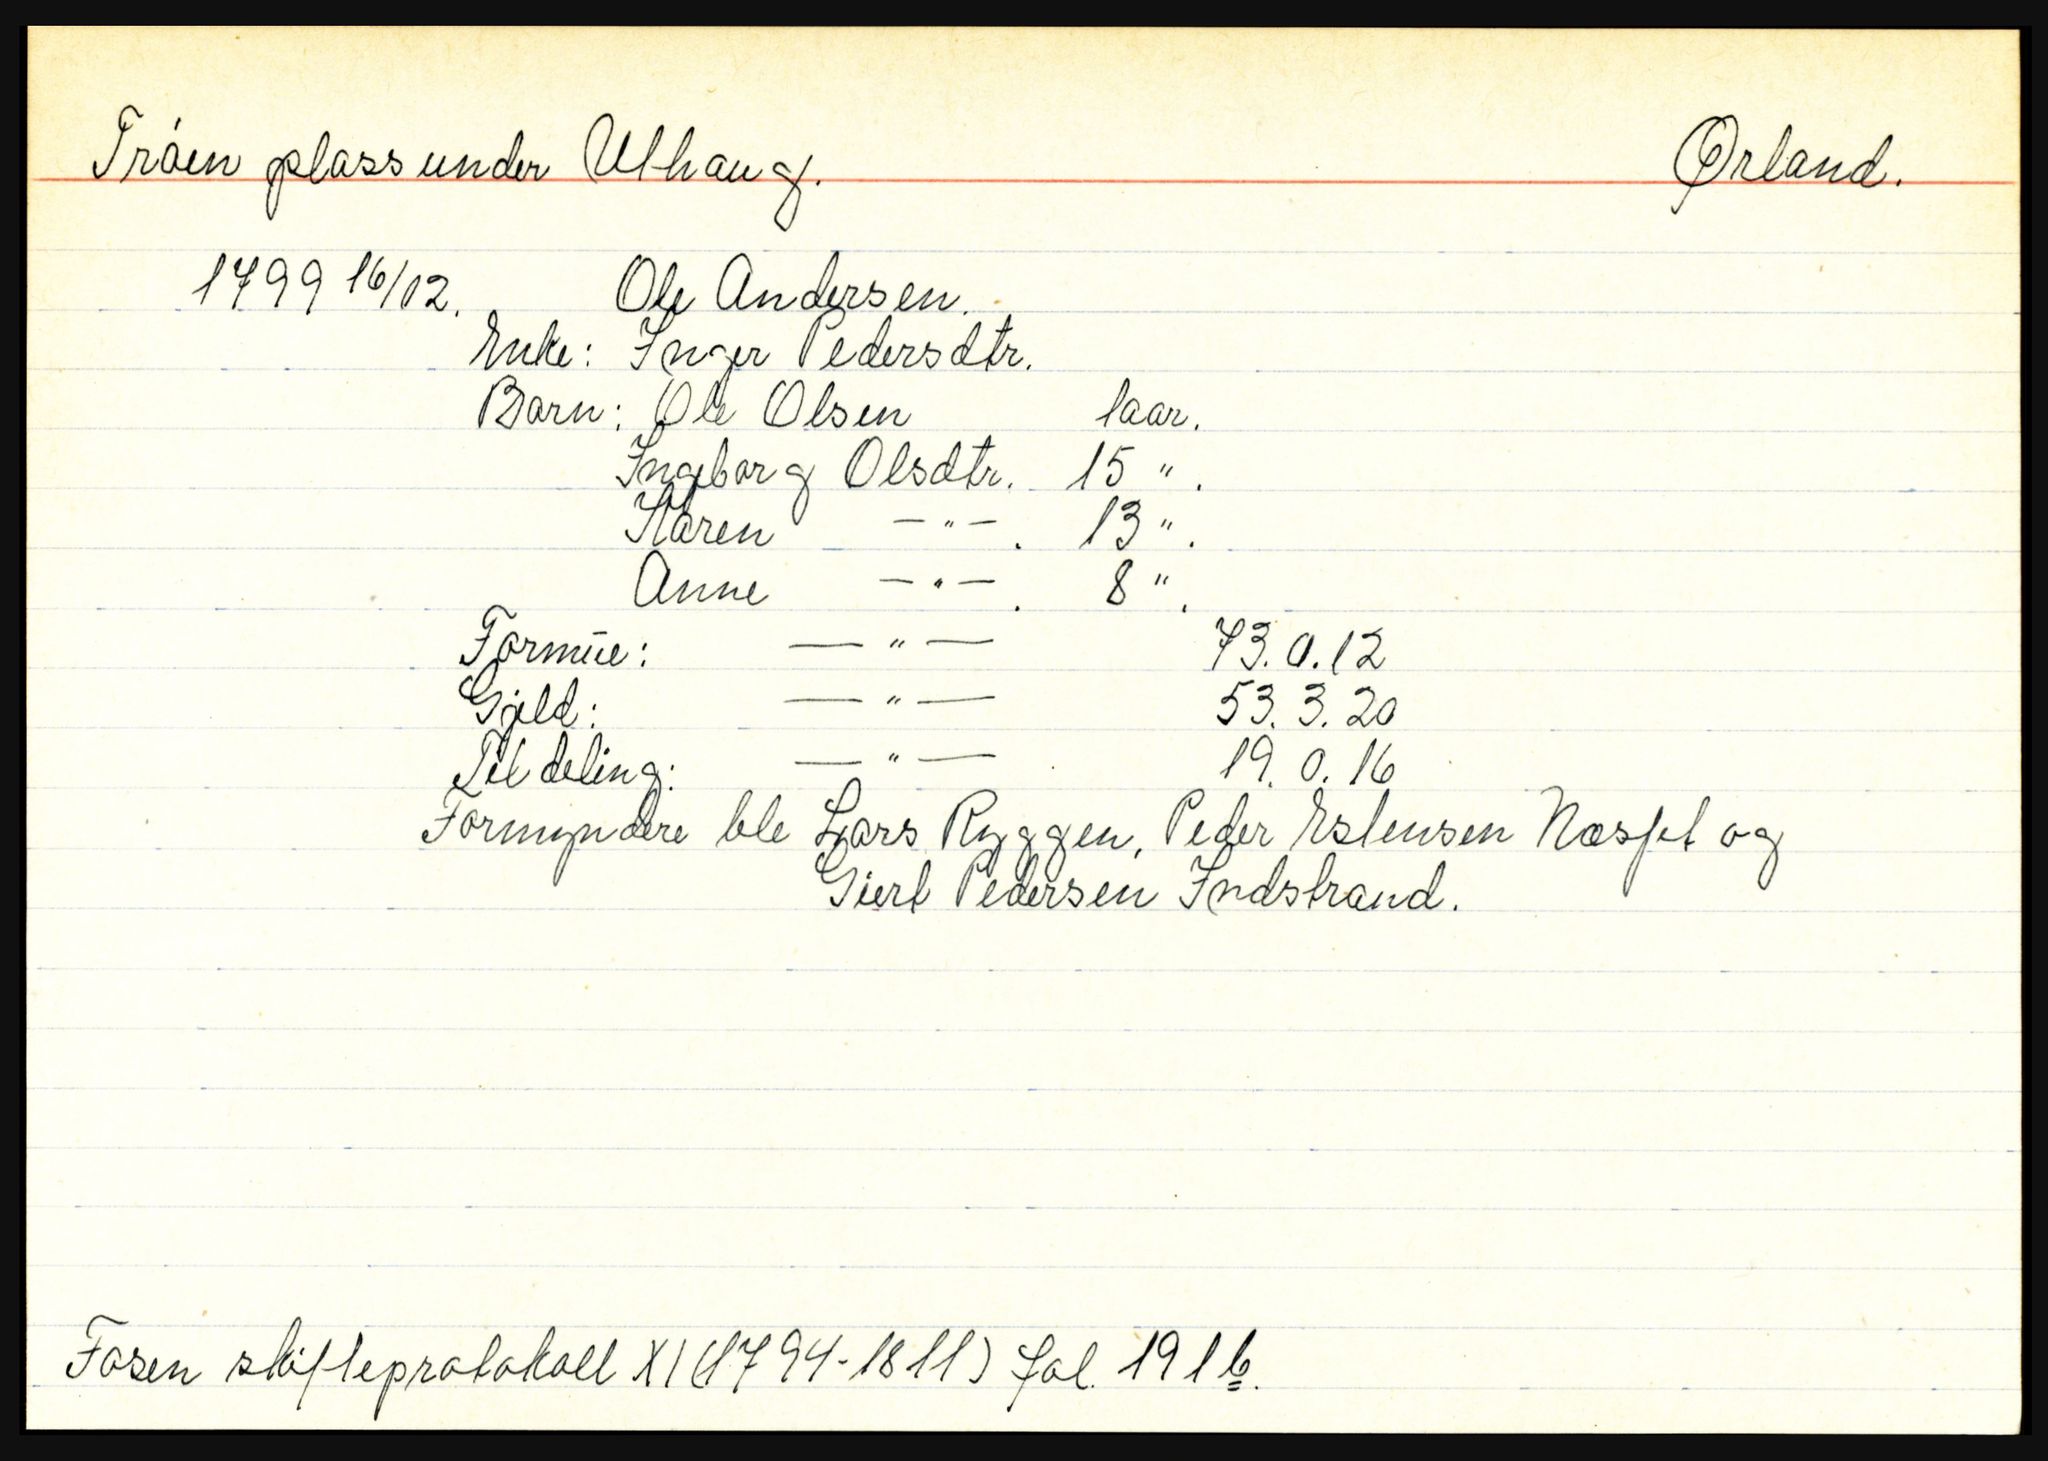 Trøen plass under Ulhaug. Ørland.
1799 16/12. Ole Andersen.
Enke: Inger Pedersdtr.
Barn: Ole Olsen 1 aar.
Ingeborg Olsdtr. 15 ".
Karen — " — . 13 ".
Anne — " — . 8 ".
Formue: — " — 73. 0. 12
Gjeld: — " — 53. 3. 20
Til deling: — " — 19. 0. 16
Formyndere ble Lars Ryggen, Peder Estensen Næsset og
Giert Pedersen Indstrand.
Fosen skifteprotokoll XI (1794-1811) fol. 191b.